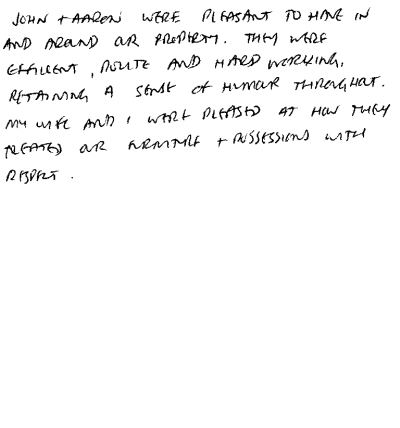 JOHN + AARON WERE PLEASANT TO HAVE IN
AND AROUND OUR PROPERTY. THEY WERE
EFFICIENT, POLITE AND HARD WORKING,
RETAINING A SENSE OF HUMOUR THROUGHOUT.
MY WIFE AND I WERE PLEASED AT HOW THEY
TREATED OUR FURNITURE + POSSESSIONS WITH
RESPECT.